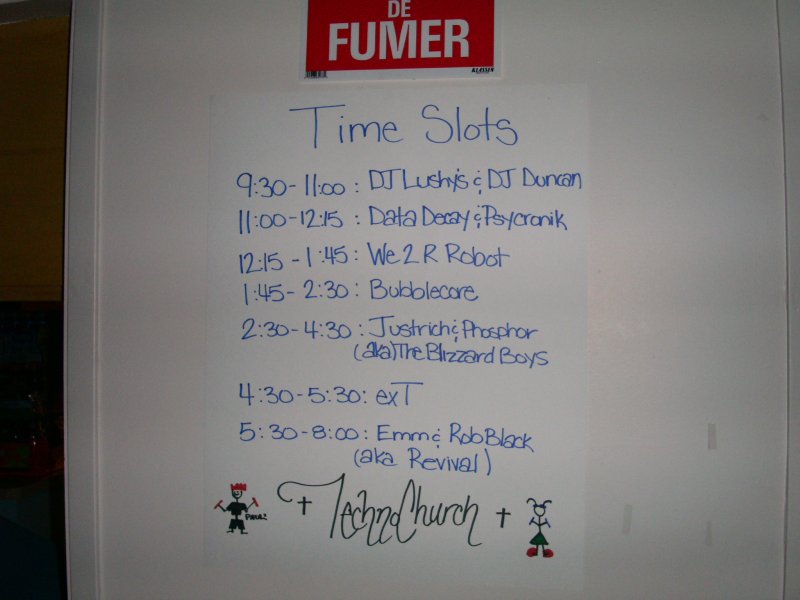 DE
FUMER
KLASSEN
Time Slots
9:30-11:00 : DJ Lushy's & DJ Duncan
11:00-12:15 : Data Decay & Psycronik
12:15 - 1:45 : We 2 R Robot
1:45 - 2:30 : Bubblecore
2:30-4:30 : Justrich & Phosphor
(aka) The Blizzard Boys
4:30-5:30: exT
5:30-8:00: Emm & Rob Black
(aka Revival)
TechnoChurch